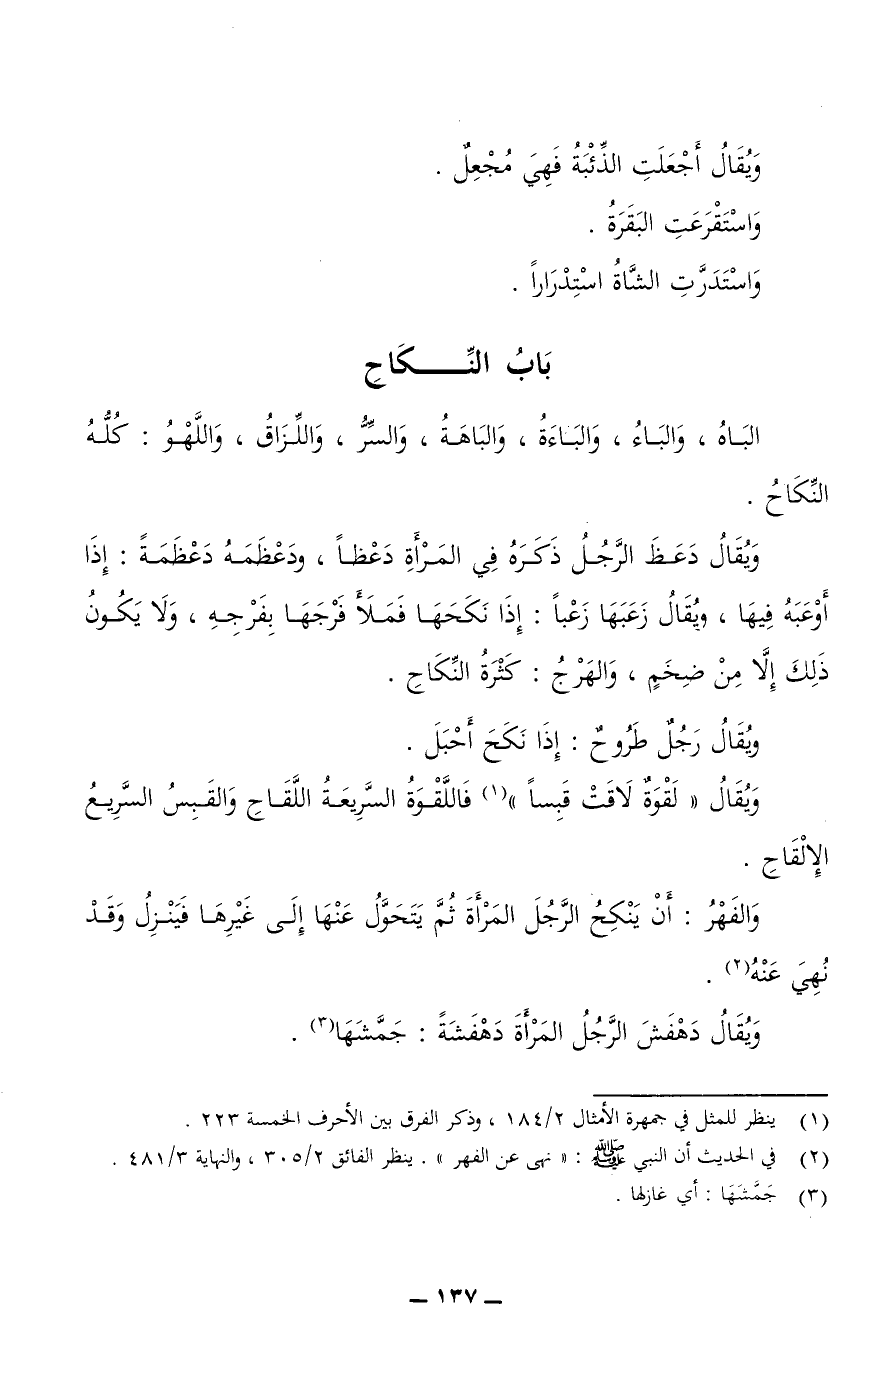 وَيُقَالُ أَجْعَلَتِ الذِّئْبَةُ فَهِيَ مُجْعِلٌ .
وَاسْتَقْرَعَتِ البَقَرَةُ .
وَاسْتَدَرَّتِ الشَّاةُ اسْتِدْرَاراً .
بَابُ النِّكَاحِ
البَاهُ ، وَالبَاءُ ، وَالبَاءَةُ ، وَالبَاهَةُ ، وَالسِّرُّ ، وَاللِّزَاقُ ، وَاللَّهْوُ : كُلُّهُ
النِّكَاحُ .
وَيُقَالُ دَعَظَ الرَّجُلُ ذَكَرَهُ فِي المَرْأَةِ دَعْظاً ، ودَعْظَمَهُ دَعْظَمَةً : إِذَا
أَوْعَبَهُ فِيهَا ، ويُقَالُ زَعَبَهَا زَعْباً : إِذَا نَكَحَهَا فَمَلَأَ فَرْجَهَا بِفَرْجِهِ ، وَلَا يَكُونُ
ذَلِكَ إِلَّا مِنْ ضِخَمٍ ، وَالهَرْجُ : كَثْرَةُ النِّكَاحِ .
ويُقَالُ رَجُلٌ طَرُوحٌ : إِذَا نَكَحَ أَحْبَلَ .
وَيُقَالُ « لَقْوَةٌ لَاقَتْ قَبِساً »(١) فَاللَّقْوَةُ السَّرِيعَةُ اللَّقَاحِ وَالقَبِسُ السَّرِيعُ
الإِلْقَاحِ .
وَالفَهْرُ : أَنْ يَنْكِحُ الرَّجُلَ المَرْأَةَ ثُمَّ يَتَحَوَّلُ عَنْهَا إِلَى غَيْرِهَا فَيَنْزِلُ وَقَدْ
نُهِيَ عَنْهُ(٢) .
وَيُقَالُ دَهْفَشَ الرَّجُلُ المَرْأَةَ دَهْفَشَةً : جَمَّشَهَا(٣) .
(١) ينظر للمثل في جمهرة الأمثال ١٨٤/٢ ، وذكر الفرق بين الأحرف الخمسة ٢٢٣ .
(٢) في الحديث أن النبي ﷺ : « نهى عن الفهر » . ينظر الفائق ٣٠٥/٢ ، والنهاية ٤٨١/٣ .
(٣) جَمَّشَهَا : أي غازلها .
— ١٣٧ —